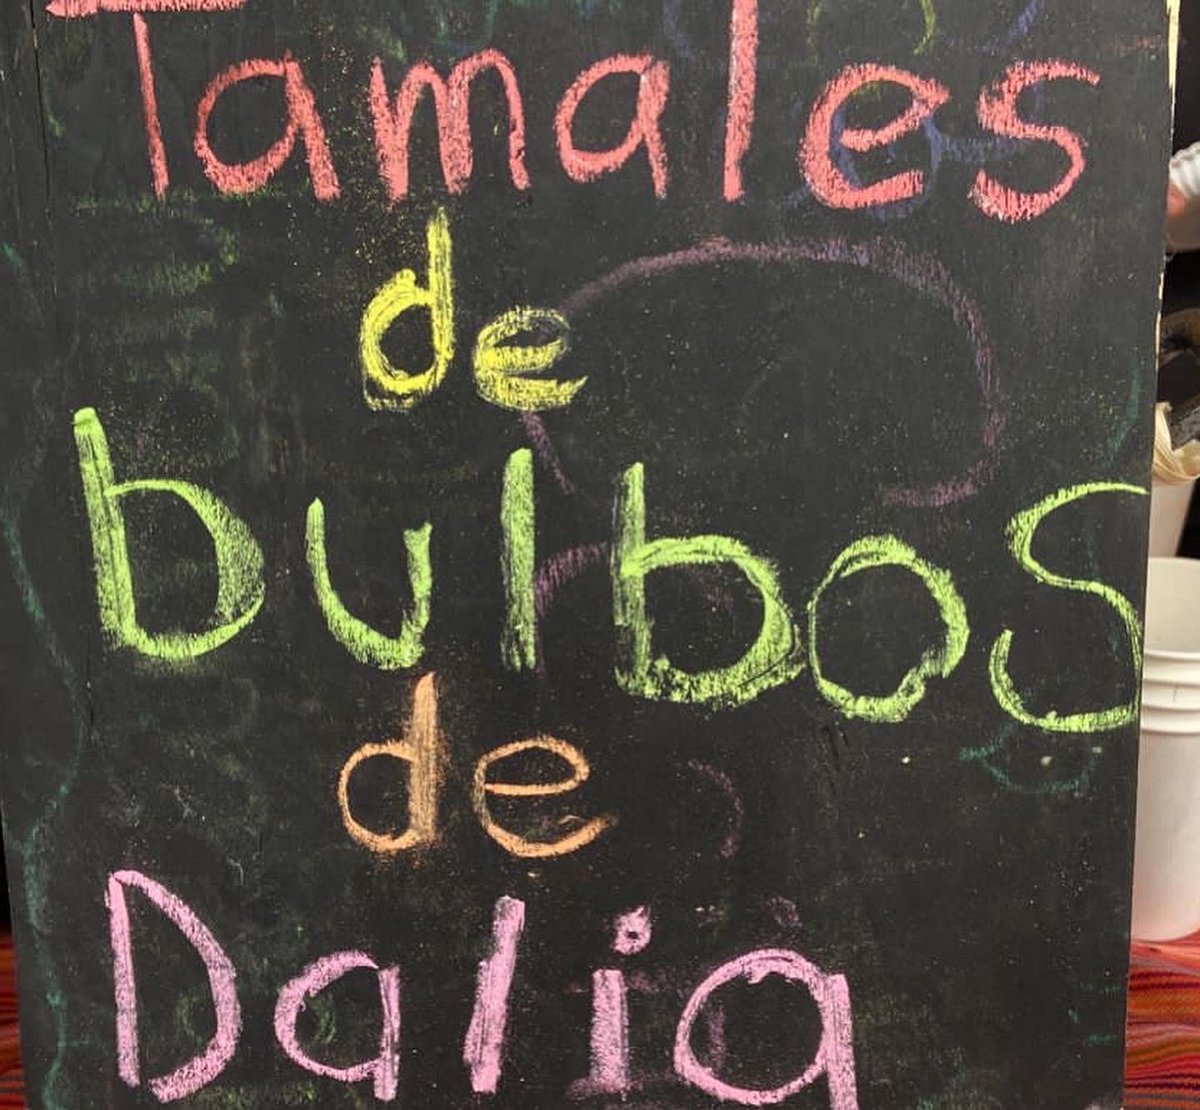 Tamales
de
bulbos
de
Dalia